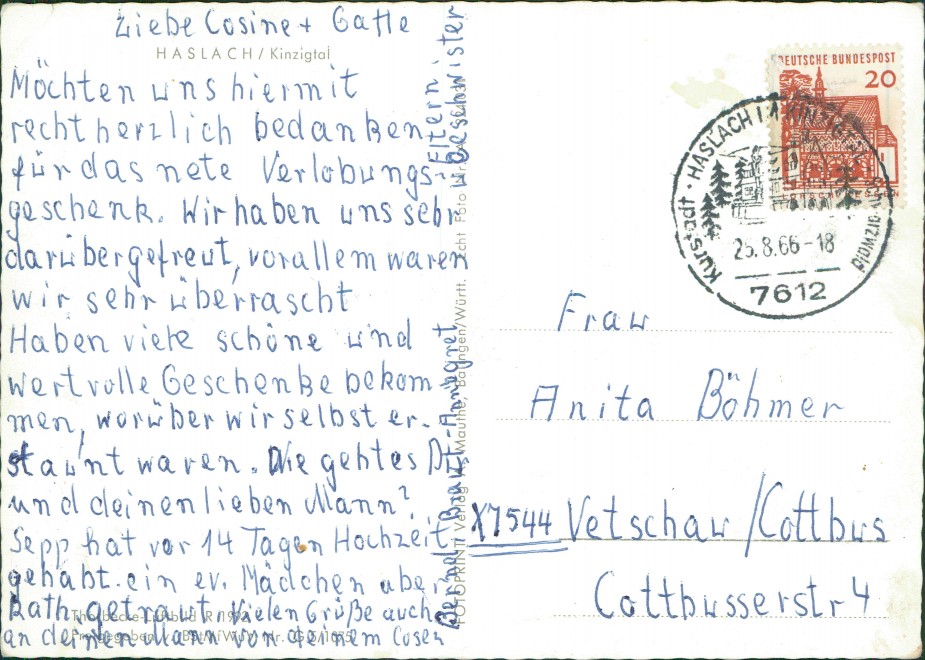 Liebe Cosine + Gatte
HASLACH / Kinzigtal
Möchten uns hiermit
recht herzlich bedanken
für das nete Verlobungs-
geschenk. Wir haben uns sehr
darüber gefreut, vorallem waren
wir sehr überrascht
Haben viele schöne und
wertvolle Geschenke bekom-
men, worüber wir selbst er-
staunt waren. Wie geht es Dir
und deinen lieben Mann?
Sepp hat vor 14 Tagen Hochzeit
gehabt. ein ev. Mädchen aber
kath. getraut. Vielen Grüße auch
an deinen Mann von deinem Cosen
Bernd Braut-Annegret
Eltern u Geschwister
FOTOPRINT Verlag Mauthe, Balingen/Württ.
Foto
DEUTSCHE BUNDESPOST
20
Kurstadt · HASLACH I.
25.8.66-18
7612
Frau
Anita Böhmer
X7544 Vetschau/Cottbus
Cottbusserstr 4